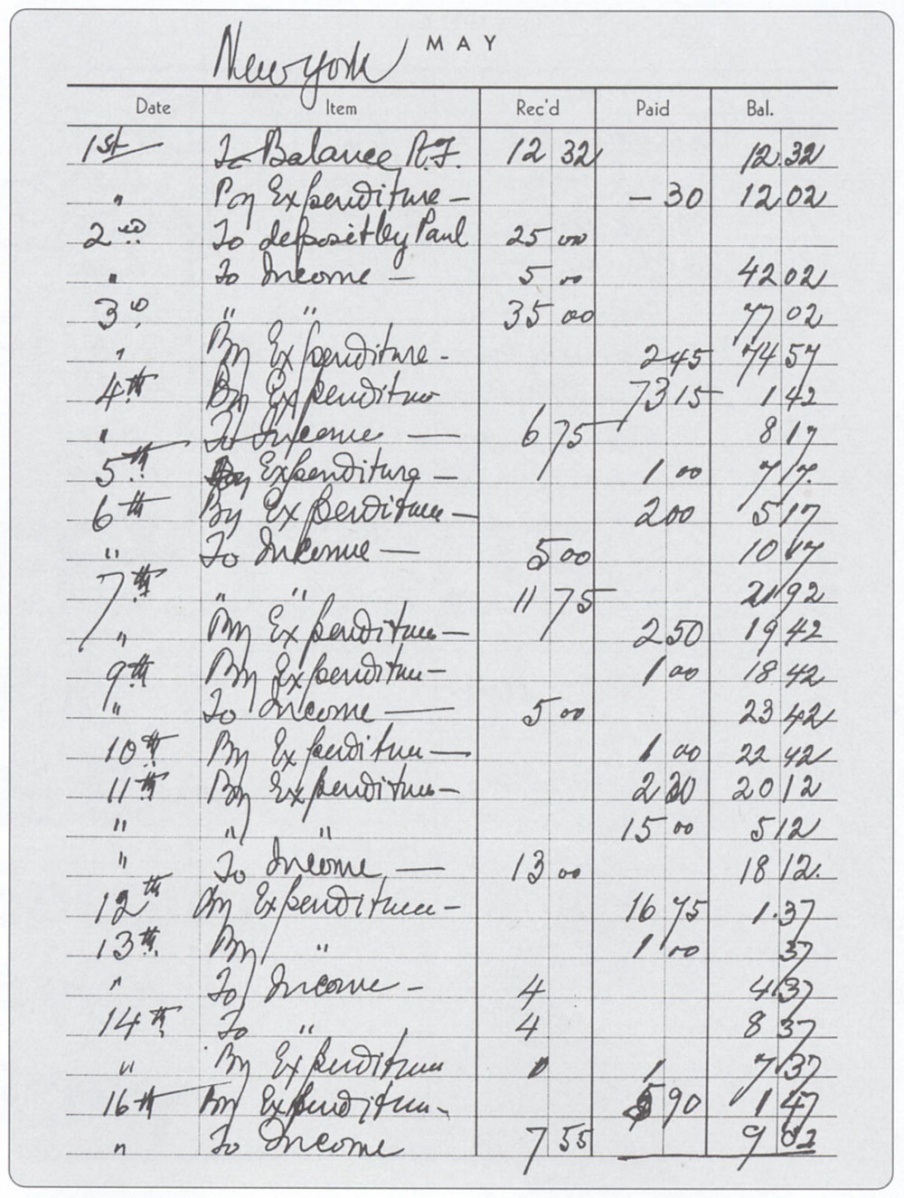 New York MAY
Date Item Rec'd Paid Bal.
1st To Balance R.F. 12 32 12.32
" By Expenditure - - 30 12 02
2nd To deposit by Paul 25 00
" To Income - 5 00 42 02
3d " " 35 00 77 02
" By Expenditure - 2 45 74 57
4th By Expenditure 73 15 1 42
" To Income - 6 75 8 17
5th By Expenditure - 1 00 7 17.
6th By Expenditure - 2 00 5 17
" To Income - 5 00 10 17
7th " " 11 75 21 92
" By Expenditure - 2 50 19 42
9th By Expenditure - 1 00 18 42
" To Income - 5 00 23 42
10th By Expenditure - 1 00 22 42
11th By Expenditure - 2 30 20 12
" " " 15 00 5 12
" To Income - 13 00 18 12.
12th By Expenditure - 16 75 1.37
13th By " 1 00 37
" To Income - 4 4 37
14th To " 4 8 37
" By Expenditure 1 7 37
16th By Expenditure - 5 90 1 47
" To Income 7 55 9 02